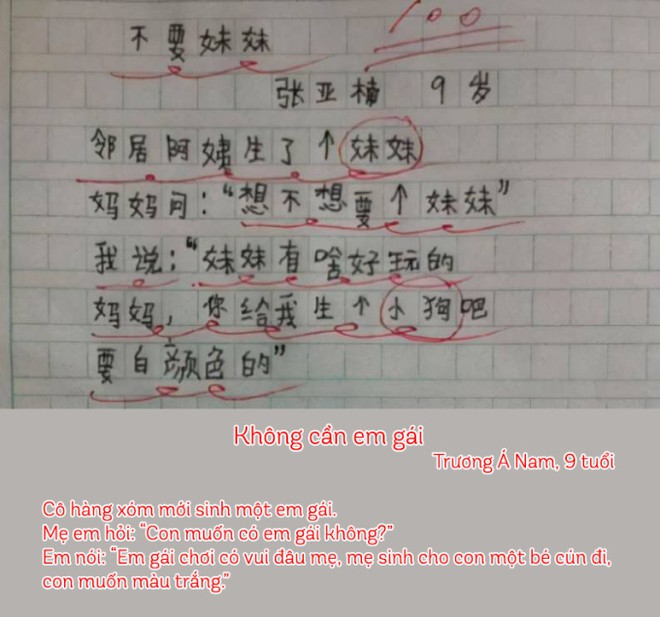 不要妹妹
100
张亚楠 9岁
邻居阿姨生了个妹妹
妈妈问：“想不想要个妹妹”
我说：“妹妹有啥好玩的
妈妈，你给我生个小狗吧
要白颜色的”
Không cần em gái
Trương Á Nam, 9 tuổi
Cô hàng xóm mới sinh một em gái.
Mẹ em hỏi: “Con muốn có em gái không?”
Em nói: “Em gái chơi có vui đâu mẹ, mẹ sinh cho con một bé cún đi,
con muốn màu trắng.”